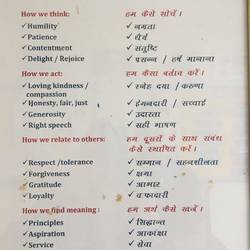 How we think:
हम कैसे सोचें ।
✓Humility
✓ नम्रता
✓Patience
✓ धैर्य
✓Contentment
✓ संतुष्टि
✓Delight / Rejoice
✓ प्रसन्न / हर्ष मानाना
How we act:
हम कैसा बर्ताव करें ।
✓Loving kindness /
compassion
✓ स्नेह दया / करुणा
✓Honesty, fair, just
✓ ईमानदारी / सच्चाई
✓Generosity
✓ उदारता
✓Right speech
✓ सही भाषण
How we relate to others:
हम दूसरों के साथ संबंध
कैसे स्थापित करें ।
✓Respect /tolerance
✓ सम्मान / सहनशीलता
✓Forgiveness
✓ क्षमा
✓Gratitude
✓ आभार
✓Loyalty
✓ वफादारी
How we find meaning :
हम अर्थ कैसे खोजें ।
✓Principles
✓ सिद्धान्त
✓Aspiration
✓ आकांक्षा
✓Service
✓ सेवा